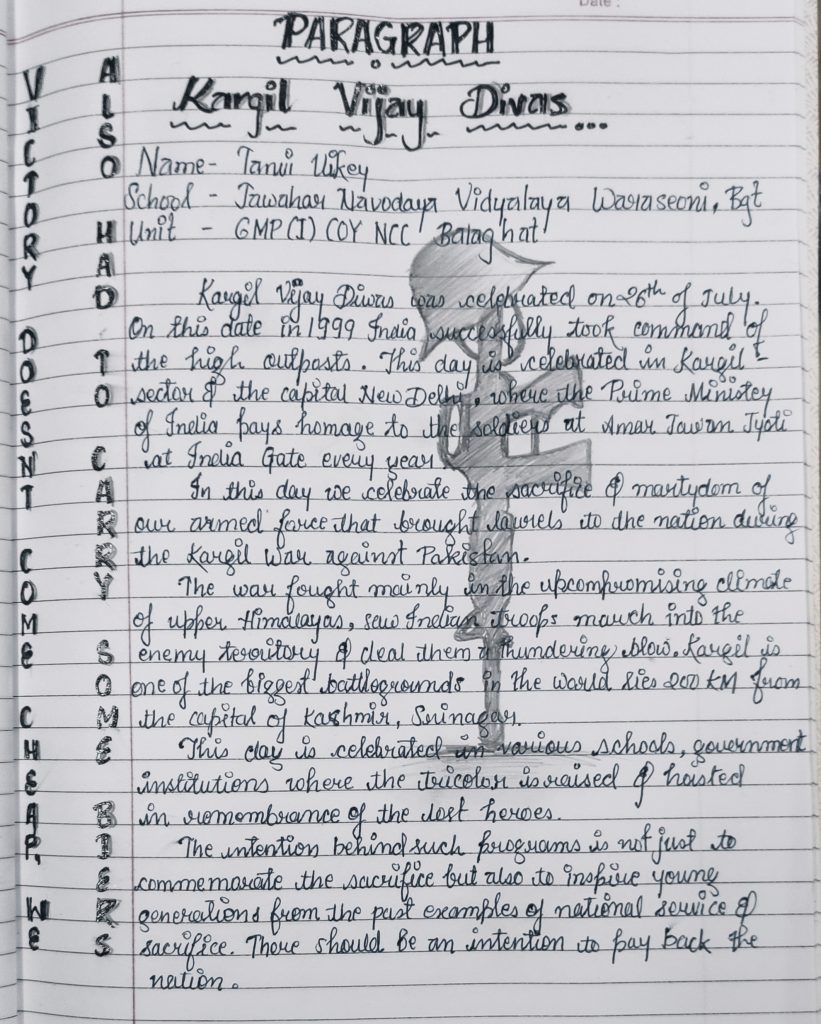 Date :
PARAGRAPH
Kargil Vijay Divas...
Name- Tanvi Uikey
School - Jawahar Navodaya Vidyalaya Waraseoni, Bgt
Unit - GMP(I) COY NCC Balaghat
Kargil Vijay Diwas was celebrated on 26th of July.
On this date in 1999 India successfully took command of
the high outposts. This day is celebrated in Kargil-
sector & the capital New Delhi, where the Prime Ministey
of India pays homage to the soldiers at Amar Jawan Jyoti
at India Gate every year
In this day we celebrate the sacrifice & martydom of
our armed force that brought laurels to the nation during
the Kargil War against Pakistan.
The war fought mainly in the upcompromising climate
of upper Himalayas, saw Indian troops march into the
enemy territory & deal them a thundering blow. Kargil is
one of the biggest battlegrounds in the world lies 200 KM from
the capital of Kashmir, Srinagar.
This day is celebrated in various schools, government
institutions where the tricolor is raised & hoisted
in remembrance of the lost heroes.
The intention behind such programs is not just to
commemarate the sacrifice but also to inspire young
generations from the past examples of national service &
sacrifice. There should be an intention to pay back the
nation.
VICTORY DOESNT COME CHEAP, WE
ALSO HAD TO CARRY SOME BIERS